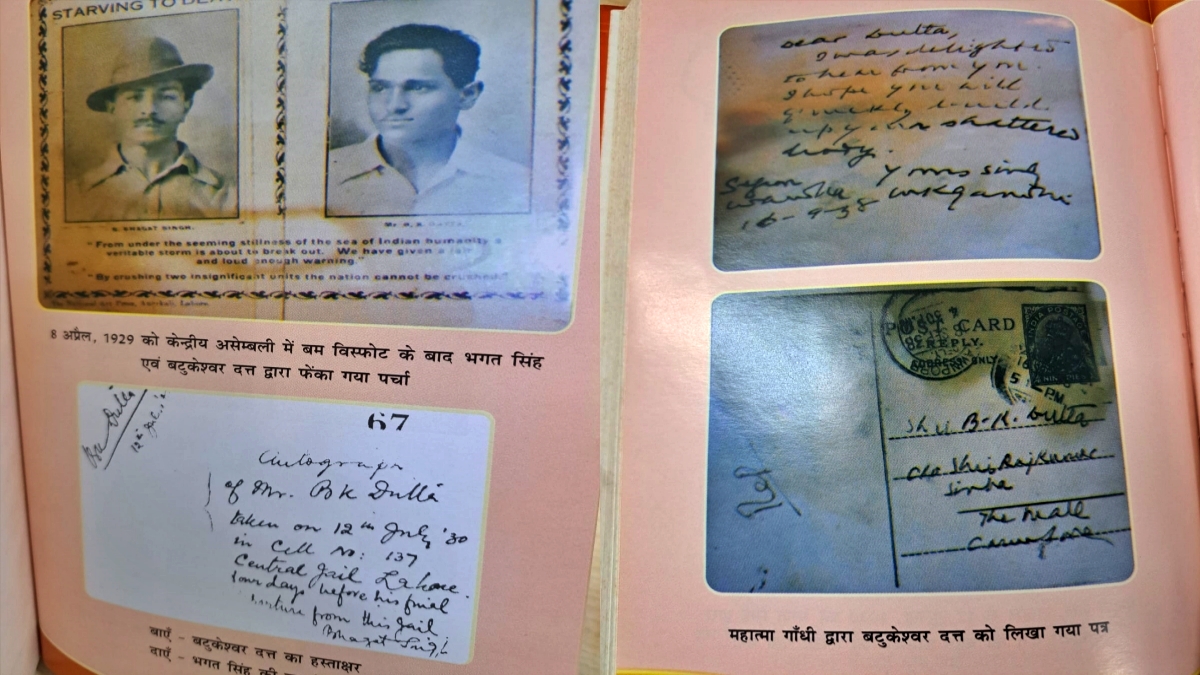 STARVING TO DEATH
S. BHAGAT SINGH.
Mr. B. K. DUTTA.
"From under the seeming stillness of the sea of Indian humanity a
veritable storm is about to break out. We have given a fair
and loud enough warning."
"By crushing two insignificant units the nation cannot be crushed."
8 अप्रैल, 1929 को केन्द्रीय असेम्बली में बम विस्फोट के बाद भगत सिंह
एवं बटुकेश्वर दत्त द्वारा फेंका गया पर्चा
67
Dutta
12th July
Autograph
of Mr. BK Dutta
taken on 12th July '30
in Cell No: 137
Central Jail Lahore.
four days before his final
from this Jail.
Bhagat Singh
बाएँ - बटुकेश्वर दत्त का हस्ताक्षर
दाएँ - भगत सिंह की
Dear Dutta,
I was delighted
to hear from you.
I hope you will
quickly build
up your shattered
body.
Yours sincly
MKGandhi
Segaon
Wardha
16-9-38
POST CARD
REPLY.
ADDRESS ONLY.
5
PM
Shri B.K. Dutta
c/o Shri Rajkumar
Sinha
The Mall
Cawnpore
महात्मा गाँधी द्वारा बटुकेश्वर दत्त को लिखा गया पत्र